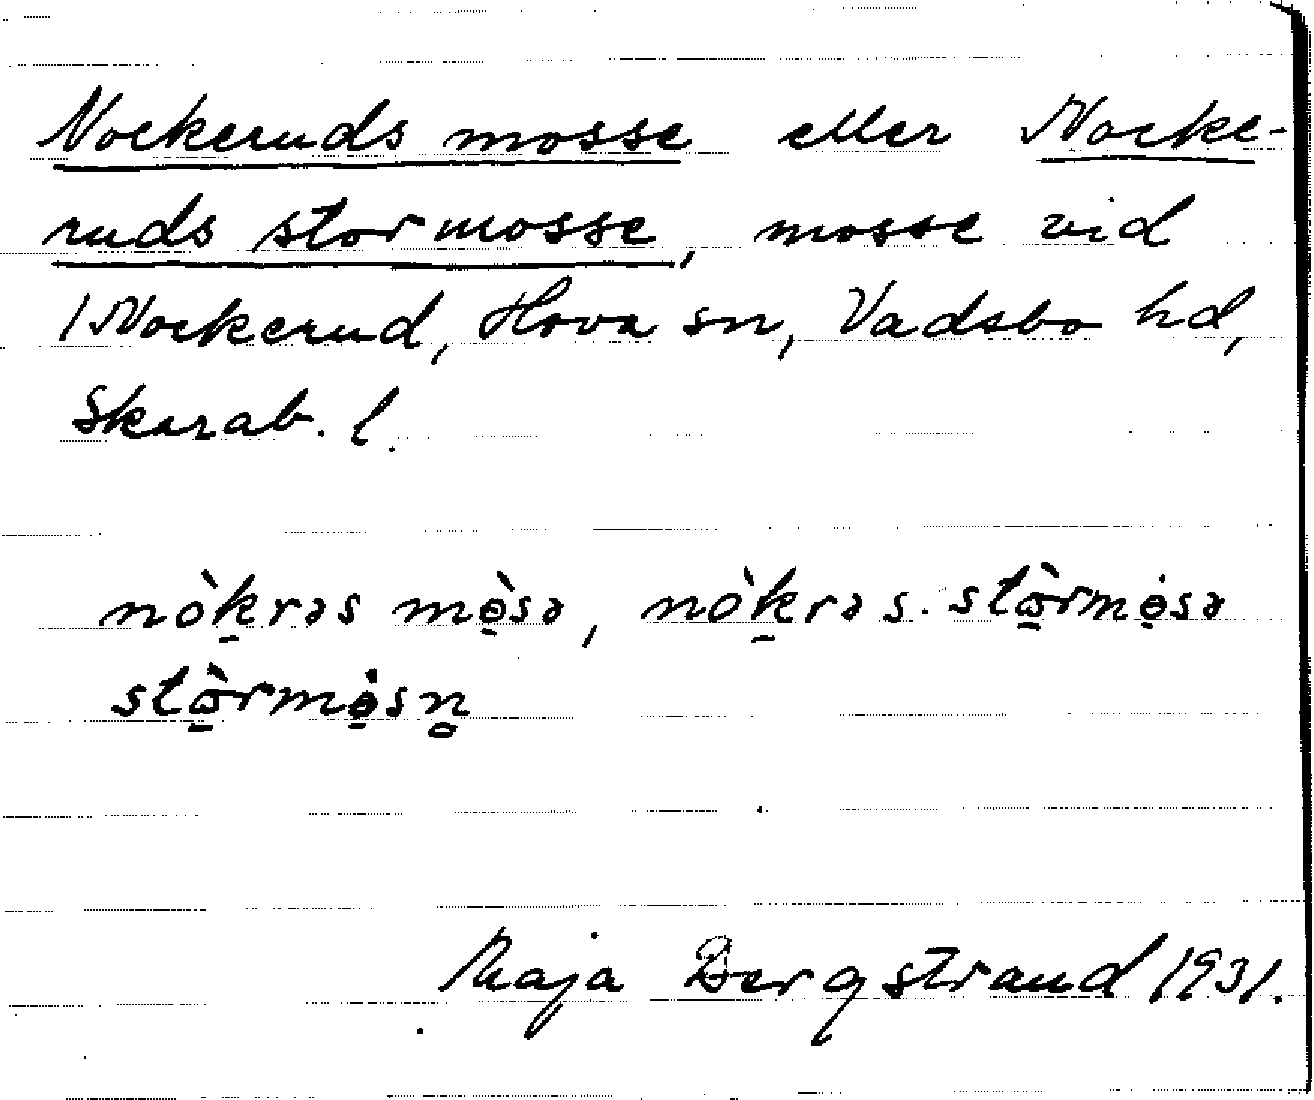 Nockeruds mosse eller Nocke-
ruds stormosse, mosse vid
/Nockerud, Hova sn, Vadsbo hd,
Skarab. l.
nòk̠rəs mò̠sə, nòk̠rəs. stɷ̠̀rmȯ̠sə
stɷ̠̀rmȯ̠sn̥
Maja Bergstrand 1931.